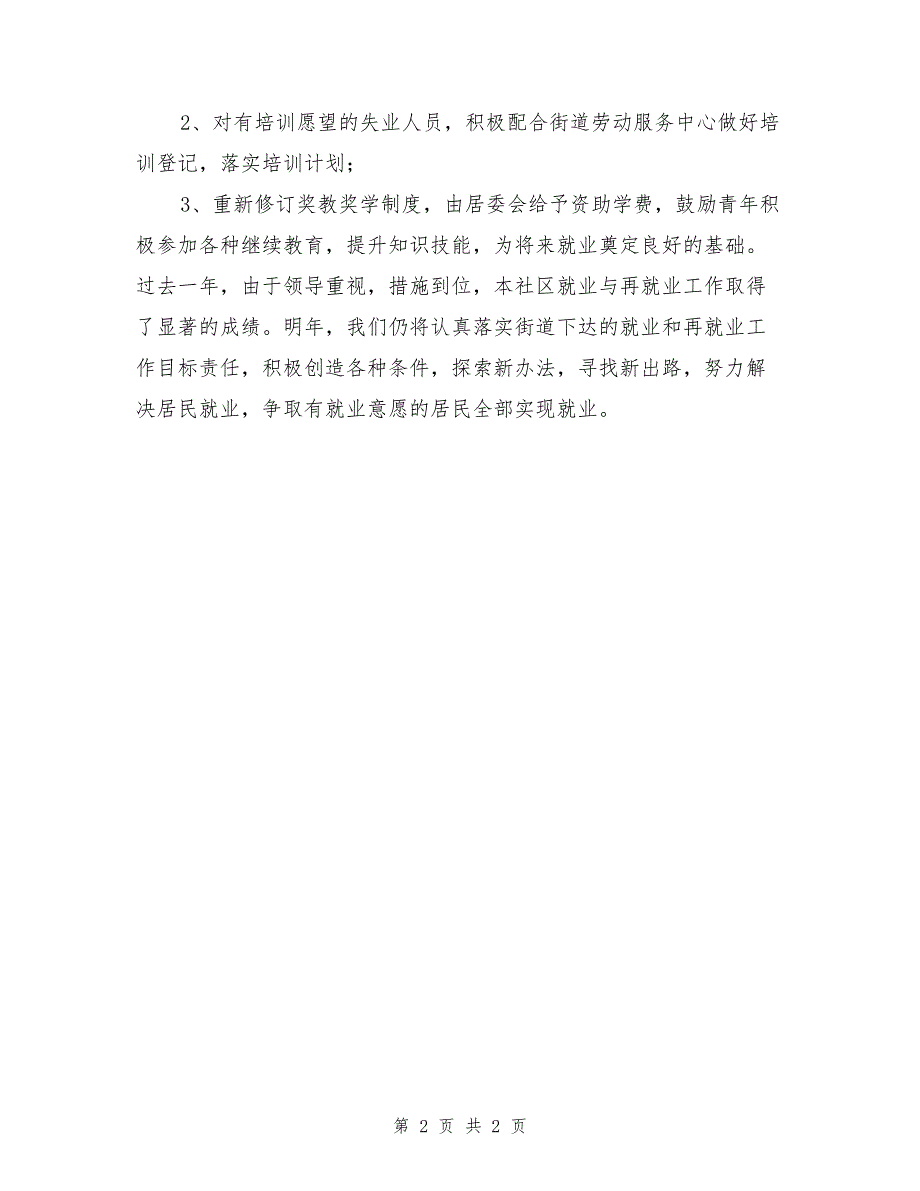 2、对有培训愿望的失业人员，积极配合街道劳动服务中心做好培
训登记，落实培训计划；
3、重新修订奖教奖学制度，由居委会给予资助学费，鼓励青年积
极参加各种继续教育，提升知识技能，为将来就业奠定良好的基础。
过去一年，由于领导重视，措施到位，本社区就业与再就业工作取得
了显著的成绩。明年，我们仍将认真落实街道下达的就业和再就业工
作目标责任，积极创造各种条件，探索新办法，寻找新出路，努力解
决居民就业，争取有就业意愿的居民全部实现就业。
第 2 页 共 2 页